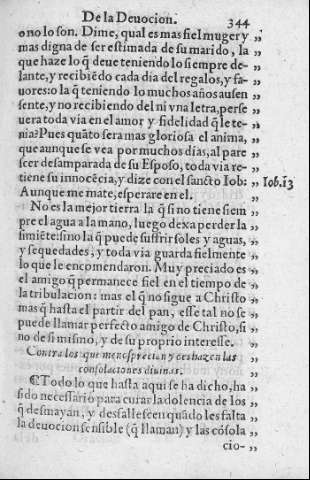 De la Deuocion. 344
o no lo son. Dime, qual es mas fiel muger y ,,
mas digna de ser estimada de su marido, la ,,
que haze lo q̃ deue teniendo lo siempre de- ,,
lante, y recibiẽdo cada dia del regalos, y fa- ,,
uores: o la q̃ teniendo lo muchos años ausen ,,
sente, y no recibiendo del ni vna letra, perse ,,
uera toda via en el amor y fidelidad q̃ le te- ,,
nia? Pues quãto sera mas gloriosa el anima, ,,
que aunque se vea por muchos dias, al pare ,,
scer desamparada de su Esposo, toda via re- ,,
tiene su innocẽcia, y dize con el sancto Iob: ,, Iob.13
Aunque me mate, esperare en el. ,,
No es la mejor tierra la q̃ si no tiene siem ,,
pre el agua a la mano, luego dexa perder la ,,
simiẽte: sino la q̃ puede suffrir soles y aguas, ,,
y sequedades, y toda via guarda fielmente ,,
lo que le encomendaron. Muy preciado es ,,
el amigo q̃ permanece fiel en el tiempo de ,,
la tribulacion: mas el q̃ no sigue a Christo ,,
mas q̃ hasta el partir del pan, esse tal no se ,,
puede llamar perfecto amigo de Christo, si ,,
no de si mismo, y de su proprio interesse. ,,
Contra los que menosprecian y deshazen las ,,
consolaciones diuinas. ,,
¶ Todo lo que hasta aqui se ha dicho, ha ,,
sido necessario para curar la dolencia de los ,,
q̃ desmayan, y desfallescen quãdo les falta ,,
la deuocion sensible (q̃ llaman) y las cõsola ,,
cio- ,,